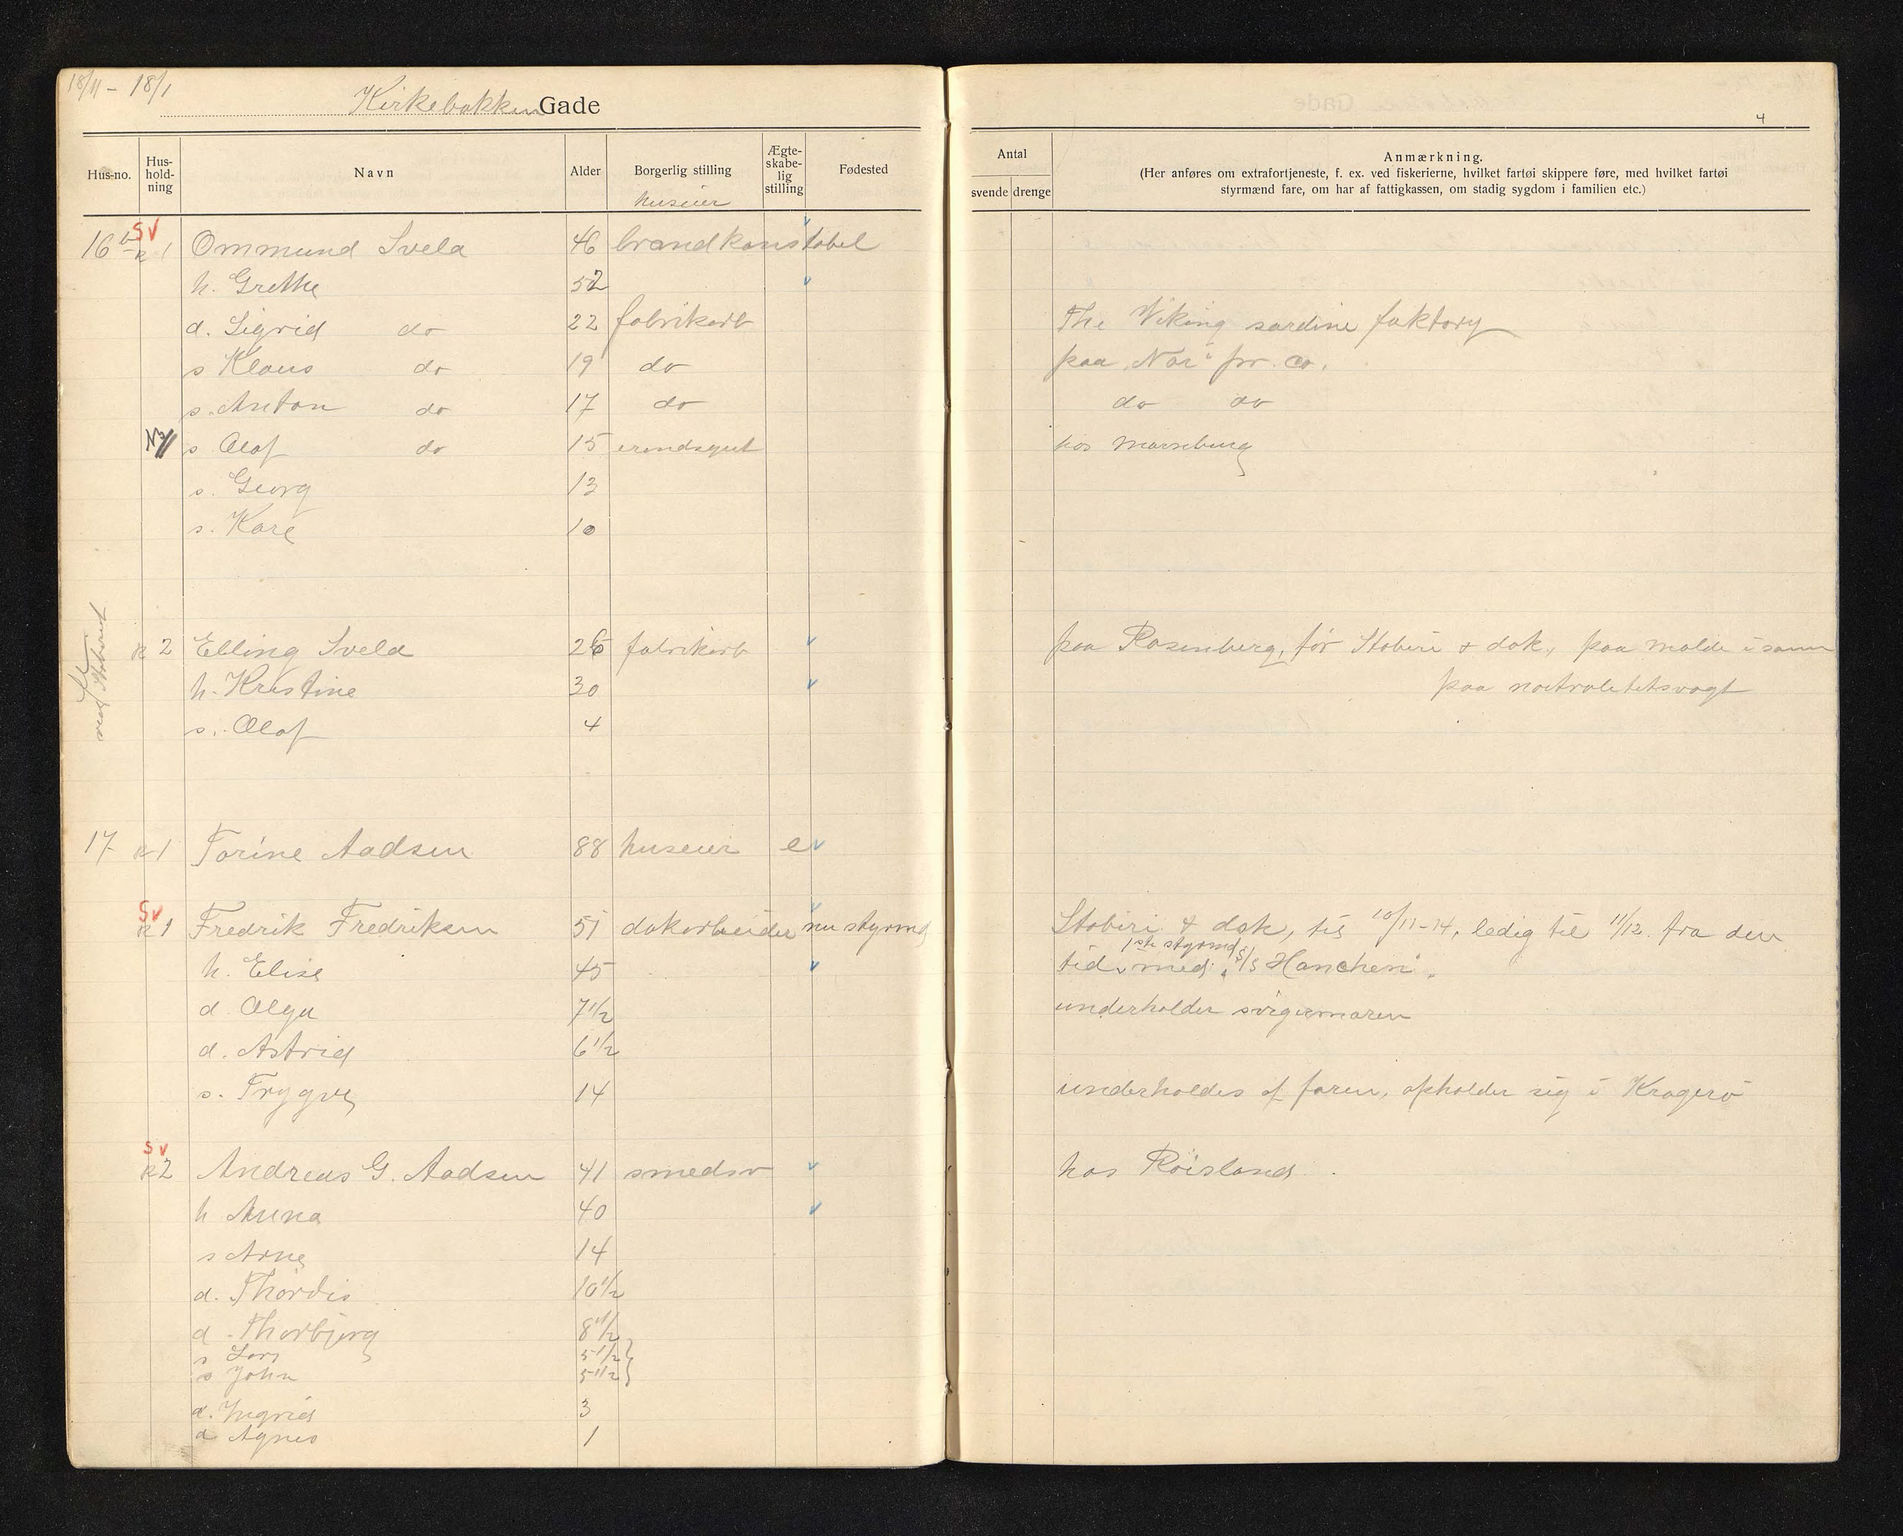 18/11 - 18/1
Kirkebakken Gade
4
Hus-no. Hus-hold-ning Navn Alder Borgerlig stilling Ægte-skabe-lig stilling Fødested
Antal
svende drenge
Anmærkning.
(Her anføres om extrafortjeneste, f. ex. ved fiskerierne, hvilket fartøi skippere føre, med hvilket fartøi
styrmænd fare, om har af fattigkassen, om stadig sygdom i familien etc.)
huseier
Sv
16 b R 1 Ommund Svela 46 brandkonstabel
h. Grethe 52
d. Sigrid do 22 fabrikarb The Viking sardine faktory
s Klaus do 19 do paa "Nor" pr. co.
s. Anton do 17 do do do
s Olaf do 15 erendsgut hos
s. Georg 13
s. Kare 10
R 2 Elling Svela 26 fabrikarb paa Rosenberg, før Støberi & dok, paa Molde i som
h. Kristine 30 paa nøitralitetsvagt
s. Olaf 4
17 R 1 Torine Aadsen 88 huseier e
Sv
R 1 Fredrik Fredriksen 51 dokarbeider nu styrmd Støberi & dok, til 10/11-14, ledig til 11/12. fra den
h. Elise 45 tid, 1ste styrmd med "S/S Hanchen".
d. Olga 7 1/2 underholder svigermoren
d. Astrid 6 1/2
s. Trygve 14 underholdes af faren, opholder sig i Kragerø
Sv
R 2 Andreas G. Aadsen 41 smedsv hos Røisland.
h Anna 40
s Arne 14
d. Thordis 10 1/2
d. Thorbjørg 8 1/2
s Lars 5 1/2 }
s John 5 1/2 }
d. Ingrid 3
d Agnes 1